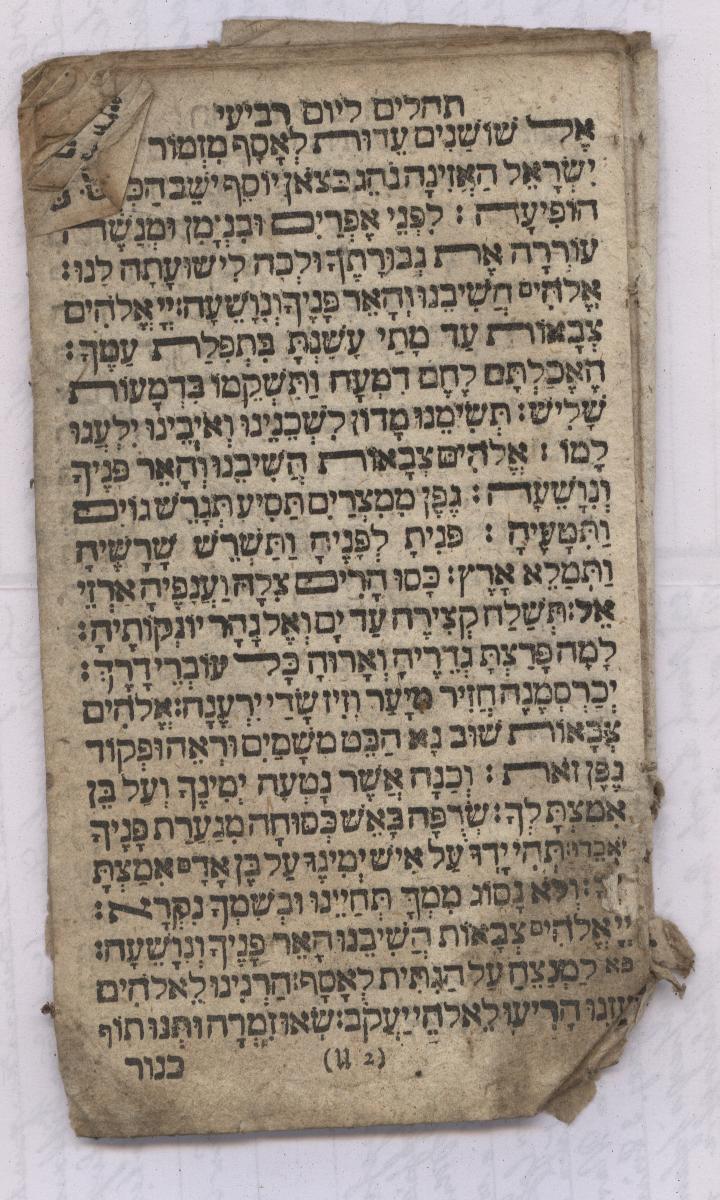 תהלים ליום רביעי
אֶל שׁוֹשַׁנִּים עֵדוּת לְאָסָף מִזְמוֹר
יִשְׂרָאֵל הַאֲזִינָה נֹהֵג כַּצֹּאן יוֹסֵף יֹשֵׁב
הוֹפִיעָה : לִפְנֵי אֶפְרַיִם וּבִנְיָמִן וּמְנַשֶּׁה
עוֹרְרָה אֶת גְּבוּרָתֶךָ וּלְכָה לִישׁוּעָתָה לָנוּ :
אֱלֹהִים הֲשִׁיבֵנוּ וְהָאֵר פָּנֶיךָ וְנִוָּשֵׁעָה : יְיָ אֱלֹהִים
צְבָאוֹת עַד מָתַי עָשַׁנְתָּ בִּתְפִלַּת עַמֶּךָ :
הֶאֱכַלְתָּם לֶחֶם דִּמְעָה וַתַּשְׁקֵמוֹ בִּדְמָעוֹת
שָׁלִישׁ : תְּשִׂימֵנוּ מָדוֹן לִשְׁכֵנֵינוּ וְאֹיְבֵינוּ יִלְעֲגוּ
לָמוֹ : אֱלֹהִים צְבָאוֹת הֲשִׁיבֵנוּ וְהָאֵר פָּנֶיךָ
וְנִוָּשֵׁעָה : גֶּפֶן מִמִּצְרַיִם תַּסִּיעַ תְּגָרֵשׁ גּוֹיִם
וַתִּטָּעֶיהָ : פִּנִּיתָ לְפָנֶיהָ וַתַּשְׁרֵשׁ שָׁרָשֶׁיהָ
וַתְּמַלֵּא אָרֶץ : כָּסּוּ הָרִים צִלָּהּ וַעֲנָפֶיהָ אַרְזֵי
אֵל : תְּשַׁלַּח קְצִירֶהָ עַד יָם וְאֶל נָהָר יוֹנְקוֹתֶיהָ :
לָמָּה פָּרַצְתָּ גְדֵרֶיהָ וְאָרוּהָ כָּל עוֹבְרֵי דָרֶךְ :
יְכַרְסְמֶנָּה חֲזִיר מִיָּעַר וְזִיז שָׂדַי יִרְעֶנָּה : אֱלֹהִים
צְבָאוֹת שׁוּב נָא הַבֵּט מִשָּׁמַיִם וּרְאֵה וּפְקוֹד
גֶּפֶן זֹאת : וְכַנָּה אֲשֶׁר נָטְעָה יְמִינֶךָ וְעַל בֵּן
אִמַּצְתָּ לָּךְ : שְׂרֻפָה בָאֵשׁ כְּסוּחָה מִגַּעֲרַת פָּנֶיךָ
יֹאבֵדוּ : תְּהִי יָדְךָ עַל אִישׁ יְמִינֶךָ עַל בֶּן אָדָם אִמַּצְתָּ
לָּךְ : וְלֹא נָסוֹג מִמֶּךָּ תְּחַיֵּינוּ וּבְשִׁמְךָ נִקְרָא :
יְיָ אֱלֹהִים צְבָאוֹת הֲשִׁיבֵנוּ הָאֵר פָּנֶיךָ וְנִוָּשֵׁעָה :
פא לַמְנַצֵּחַ עַל הַגִּתִּית לְאָסָף : הַרְנִינוּ לֵאלֹהִים
עוּזֵּנוּ הָרִיעוּ לֵאלֹהֵי יַעֲקֹב : שְׂאוּ זִמְרָה וּתְנוּ תוֹף
(11 2) כנור